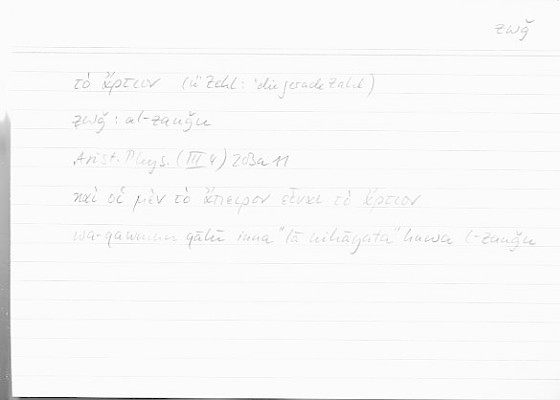 zwǧ
τὸ ἄρτιον (ü Zahl: 'die gerade Zahl)
zwǧ: al-zauǧu
Arist. Phys. (III 4) 203a 11
καὶ οἱ μὲν τὸ ἄπειρον εἶναι τὸ ἄρτιον
wa-qawmun qālū inna "lā nihāyata" huwa l-zauǧu